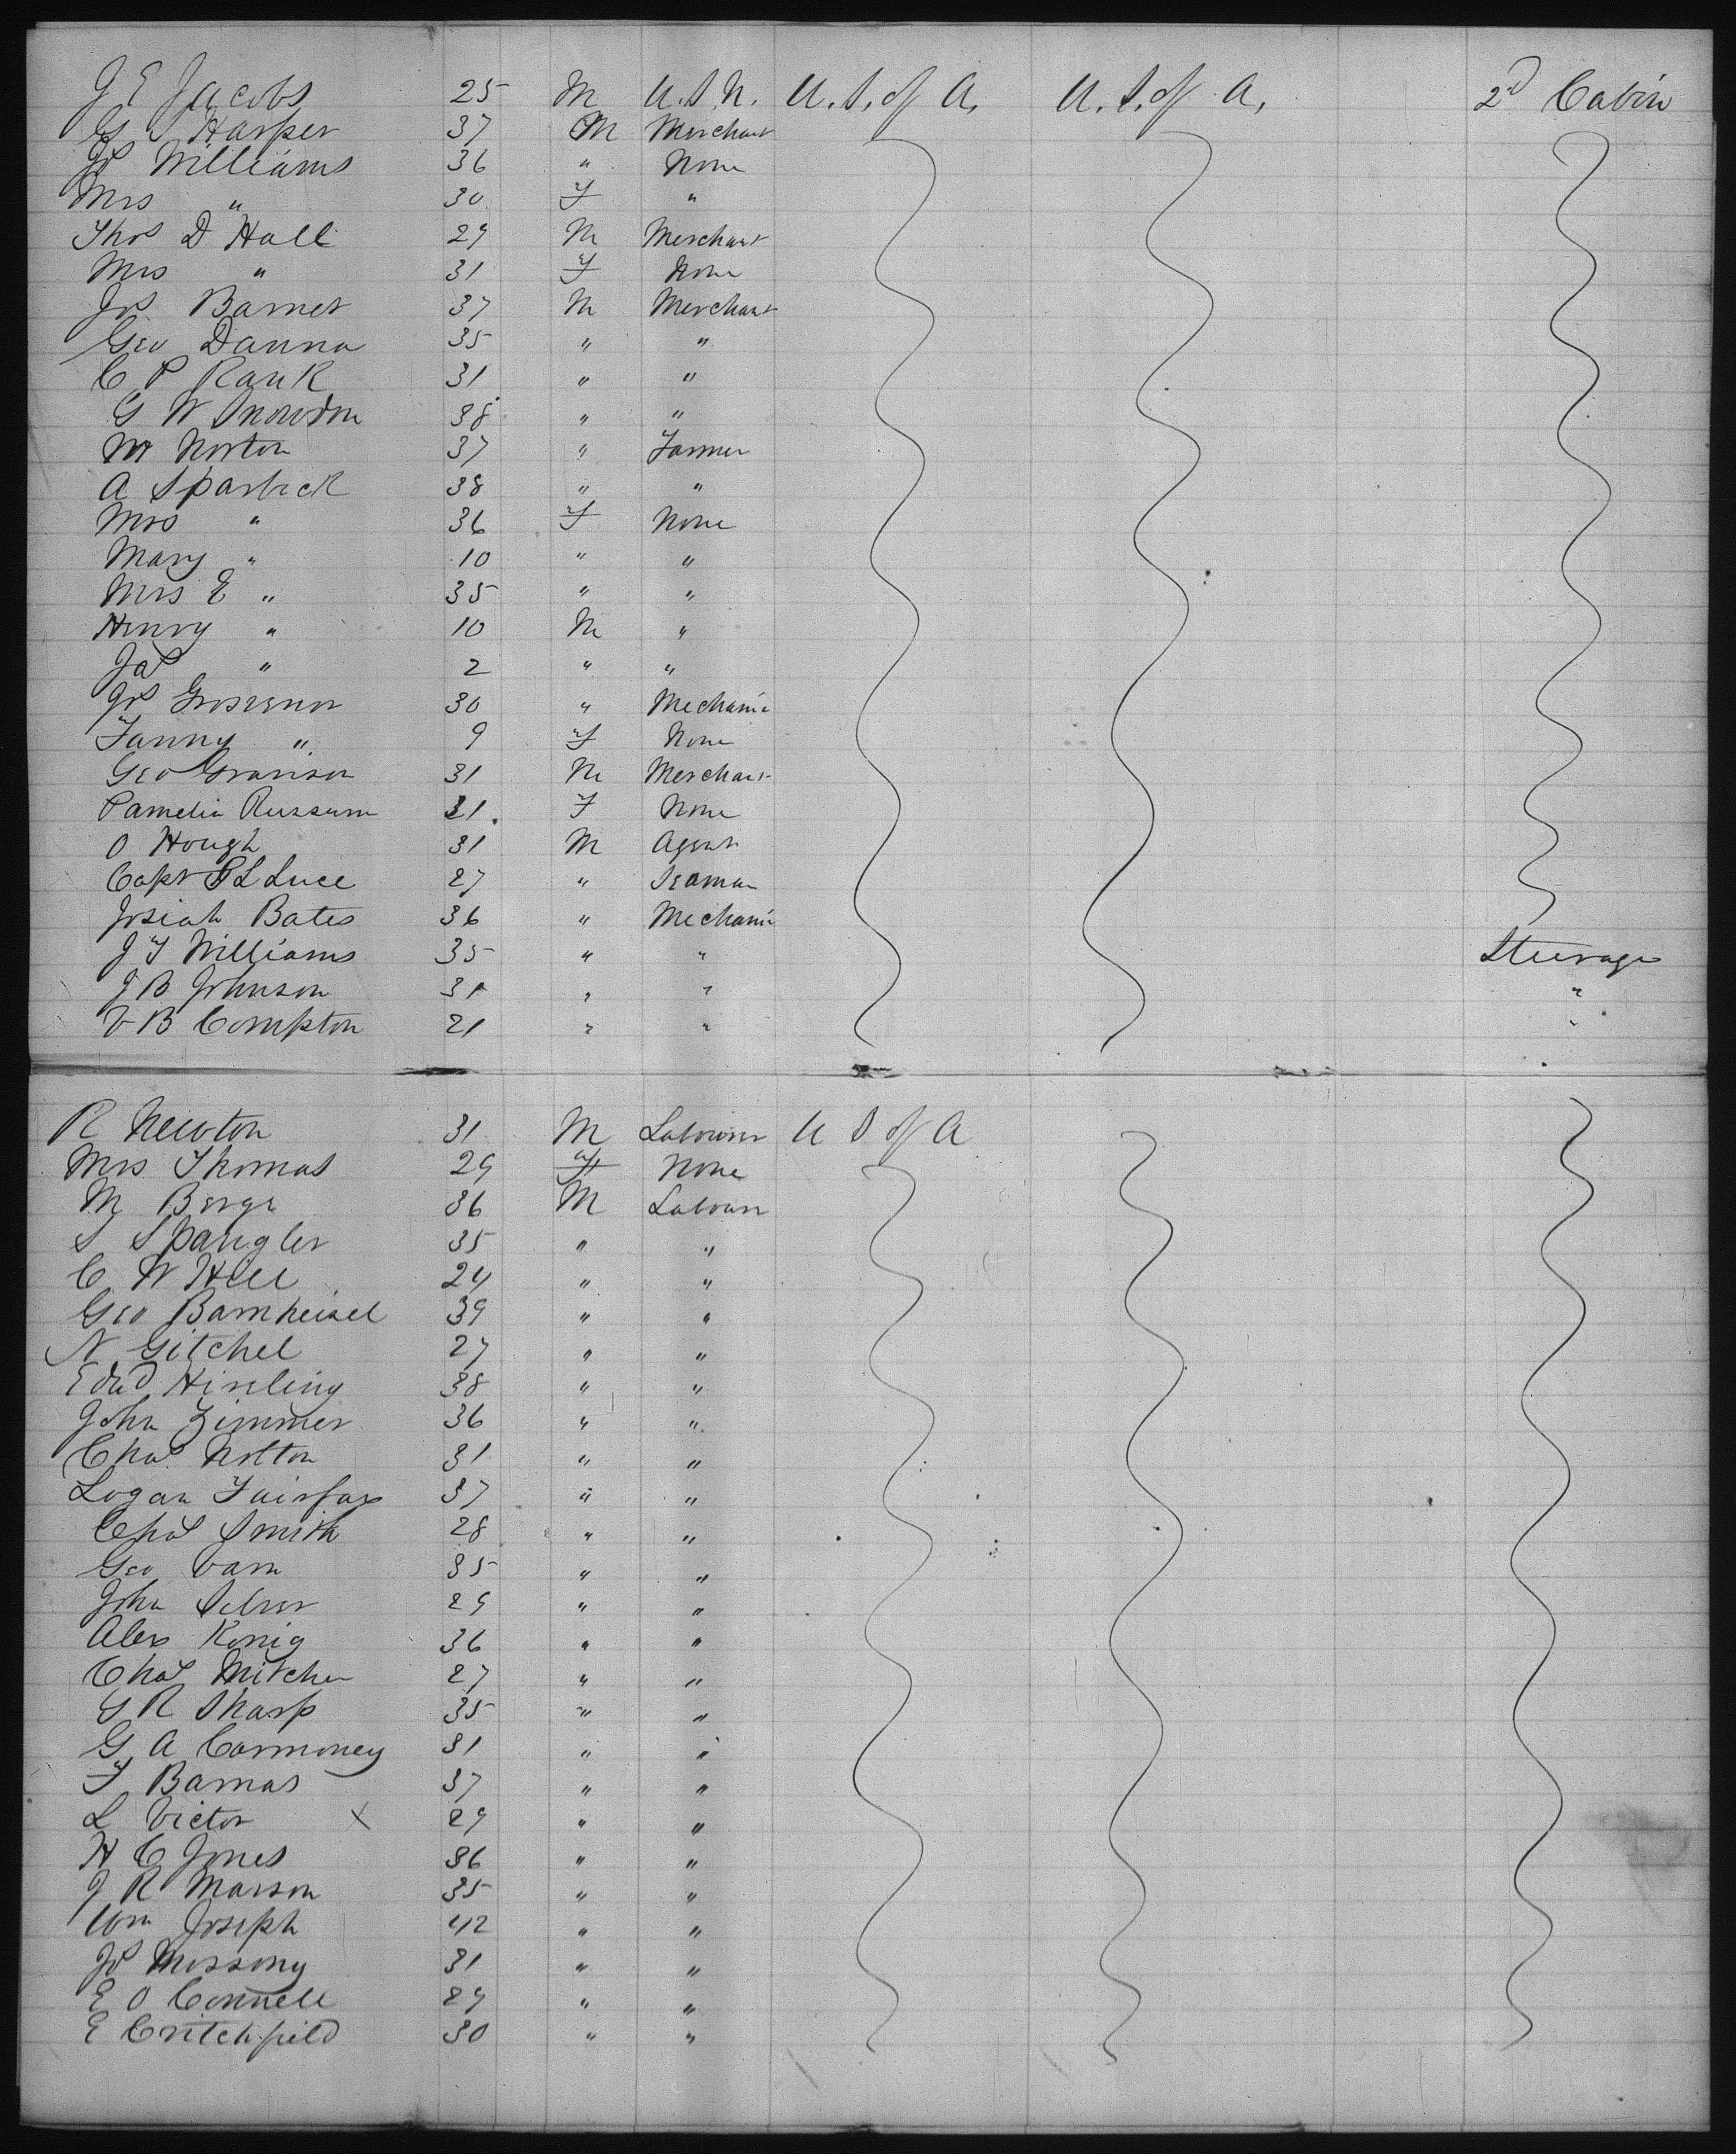 J E Jacobs 25 M U.S.N. U.S. of A. U.S. of A. 2d Cabin
G S Harper 37 M Merchant
Js Williams 36 " None
Mrs " 30 F "
Thos D Hall 29 M Merchant
Mrs " 31 F None
Js Barnet 37 M Merchant
Geo Danna 35 " "
C P Rank 31 " "
G W Snowdon 38 " "
M Norton 37 " Farmer
A Sparbeck 38 " "
Mrs " 36 F None
Mary " 10 " "
Mrs E " 35 " "
Henry " 10 M "
Jas " 2 " "
Js Grosvenor 30 " Mechanic
Fanny " 9 F None
Geo Granison 31 M Merchant
Pamelia Russum 31 F None
O Hough 31 M Agent
Capt P L Luce 27 " Seaman
Josiah Bates 36 " Mechanic
J F Williams 35 " " Steerage
J B Johnson 31 " " "
V B Compton 21 " " "
R Newton 31 M Labourer U S of A
Mrs Thomas 29 F None
M Berge 36 M Labourer
S Spangler 35 " "
C W Hill 24 " "
Geo Barnheisel 39 " "
N Gitchel 27 " "
Edwd Hirsling 38 " "
John Zimmer 36 " "
Chas Notton 31 " "
Logan Fairfax 37 " "
Chas Smith 28 " "
Geo Varn 35 " "
John Selser 29 " "
Alex Konig 36 " "
Chas Mitchen 27 " "
G R Sharp 35 " "
G A Carmoney 31 " "
F Barnas 37 " "
L Victor X 29 " "
H C Jones 36 " "
J R Marson 35 " "
Wm Joseph 42 " "
Js Messony 31 " "
E O Connell 29 " "
E Critchfield 30 " "